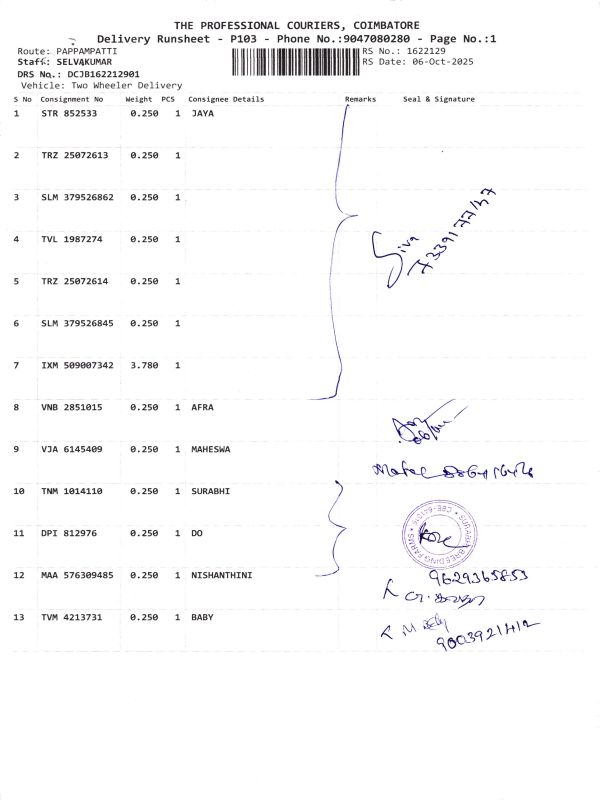 THE PROFESSIONAL COURIERS, COIMBATORE
Delivery Runsheet - P103 - Phone No.:9047080280 - Page No.:1
Route: PAPPAMPATTI
RS No.: 1622129
Staff: SELVAKUMAR
RS Date: 06-Oct-2025
DRS No.: DCJB162212901
Vehicle: Two Wheeler Delivery
S No Consignment No Weight PCS Consignee Details Remarks Seal & Signature
1 STR 852533 0.250 1 JAYA
2 TRZ 25072613 0.250 1
3 SLM 379526862 0.250 1
Siva
4 TVL 1987274 0.250 1
5 TRZ 25072614 0.250 1
6 SLM 379526845 0.250 1
7 IXM 509007342 3.780 1
8 VNB 2851015 0.250 1 AFRA
9 VJA 6145409 0.250 1 MAHESWA
10 TNM 1014110 0.250 1 SURABHI
11 DPI 812976 0.250 1 DO
SURABHI BREEDING FARMS
12 MAA 576309485 0.250 1 NISHANTHINI
9629365853
13 TVM 4213731 0.250 1 BABY